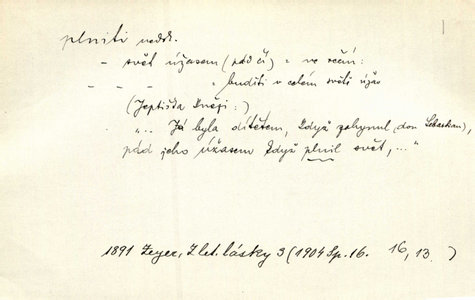 plniti nedok.
- svět úžasem (nad čí) - ve rčení:
- - - buditi v celém světě úžas
(Jeptiška Kněži:)
"... Já byla dítětem, když zahynul (don Sebastian),
pád jeho úžasem když plnil svět, ..."
1891 Zeyer, Z let. lásky 3 (1904 Sp. 16. 16, 13.)